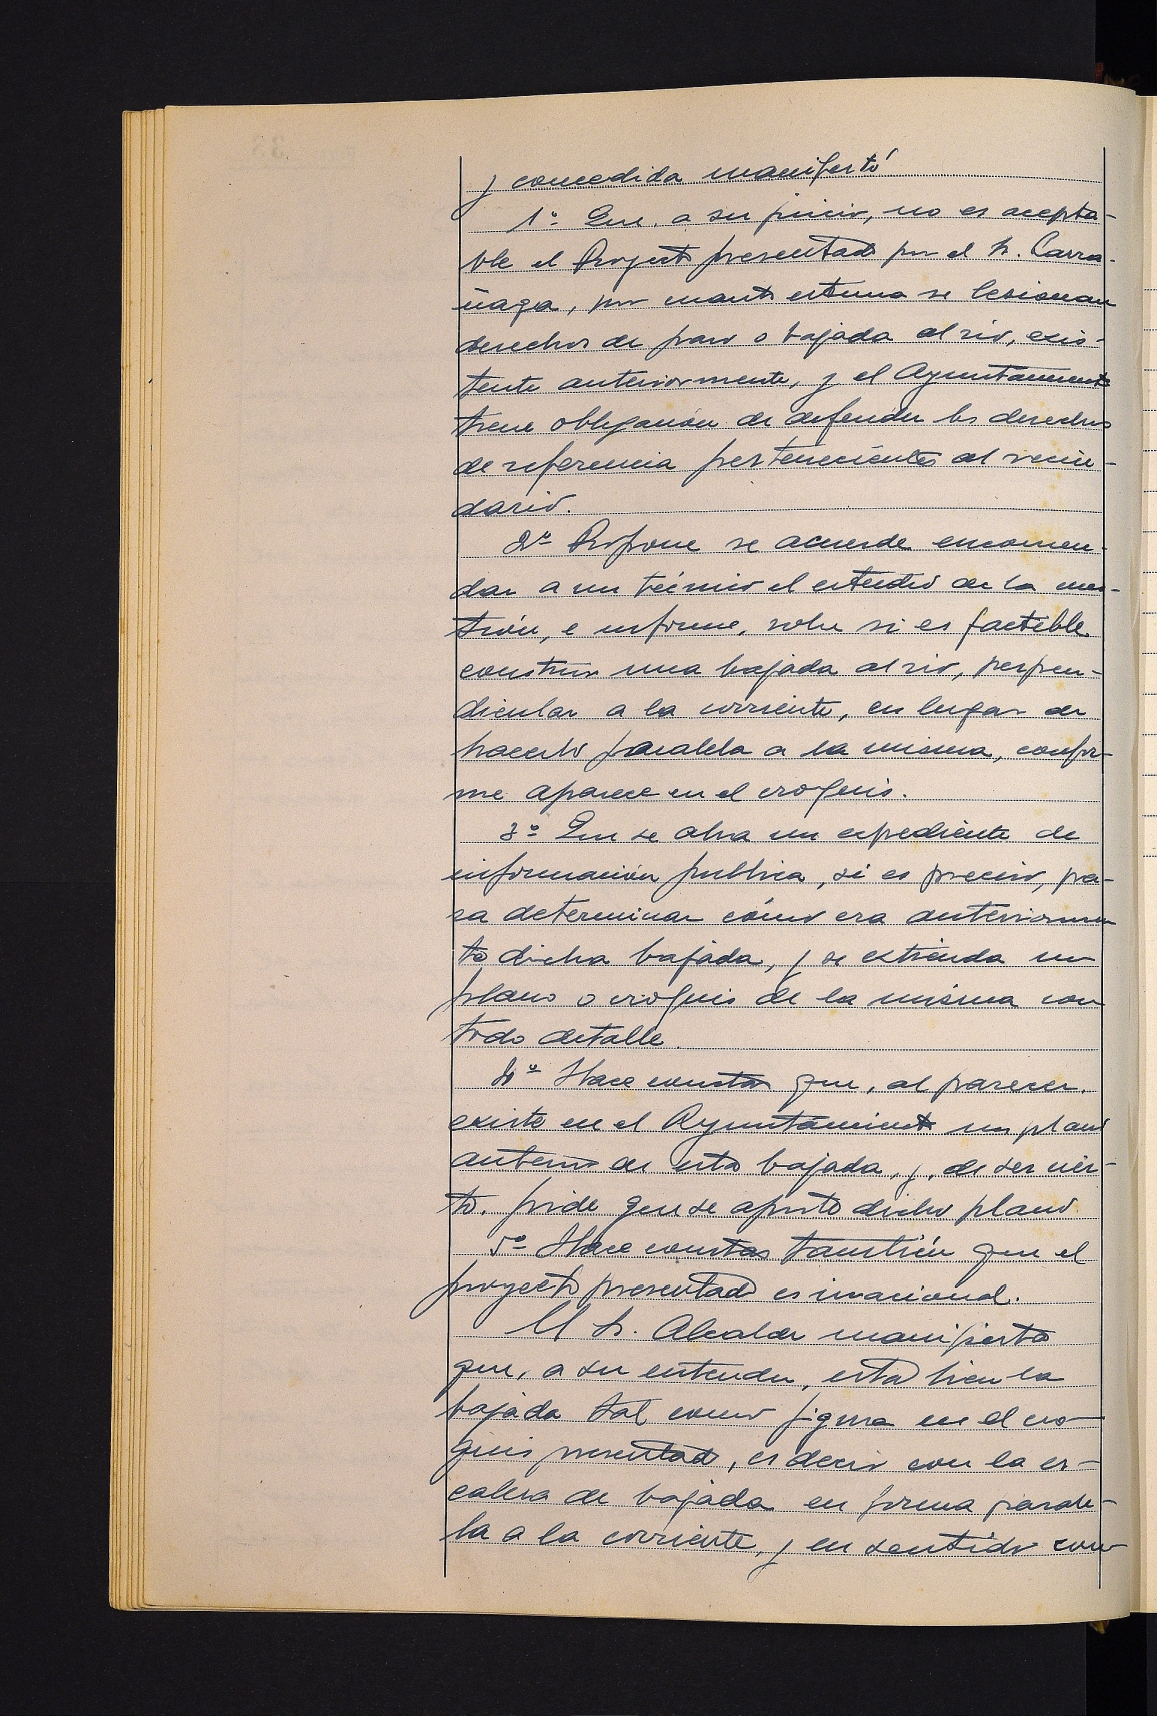 y concedida manifestó
1º Que, a su juicio, no es acepta-
ble el Proyecto presentado por el Sr. Carra-
ñaga, por cuanto estima se lesionan
derechos de paso o bajada al rio, exis-
tente anteriormente, y el Ayuntamiento
tiene obligación de defender los derechos
de referencia pertenecientes al vecin-
dario.
2º Propone se acuerde encomen-
dar a un técnico el estudio de la cues-
tión, e informe, sobre si es factible
construir una bajada al rio, perpen-
dicular a la corriente, en lugar de
hacerlo paralela a la misma, confor-
me aparece en el croquis.
3º Que se abra un expediente de
información publica, si es preciso, pa-
ra determinar cómo era anteriormen
te dicha bajada, y se extienda un
plano o croquis de la misma con
todo detalle.
4º Hace constar que, al parecer,
existe en el Ayuntamiento un plano
anterior de esta bajada, y, de ser cier-
to, pide que se aporte dicho plano
5º Hace constar también que el
proyecto presentado es irracional.
El Sr. Alcalde manifiesta
que, a su entender, está bien la
bajada tal como figura en el cro
quis presentado, es decir con la es-
calera de bajada en forma parale-
la a la corriente, y en sentido con